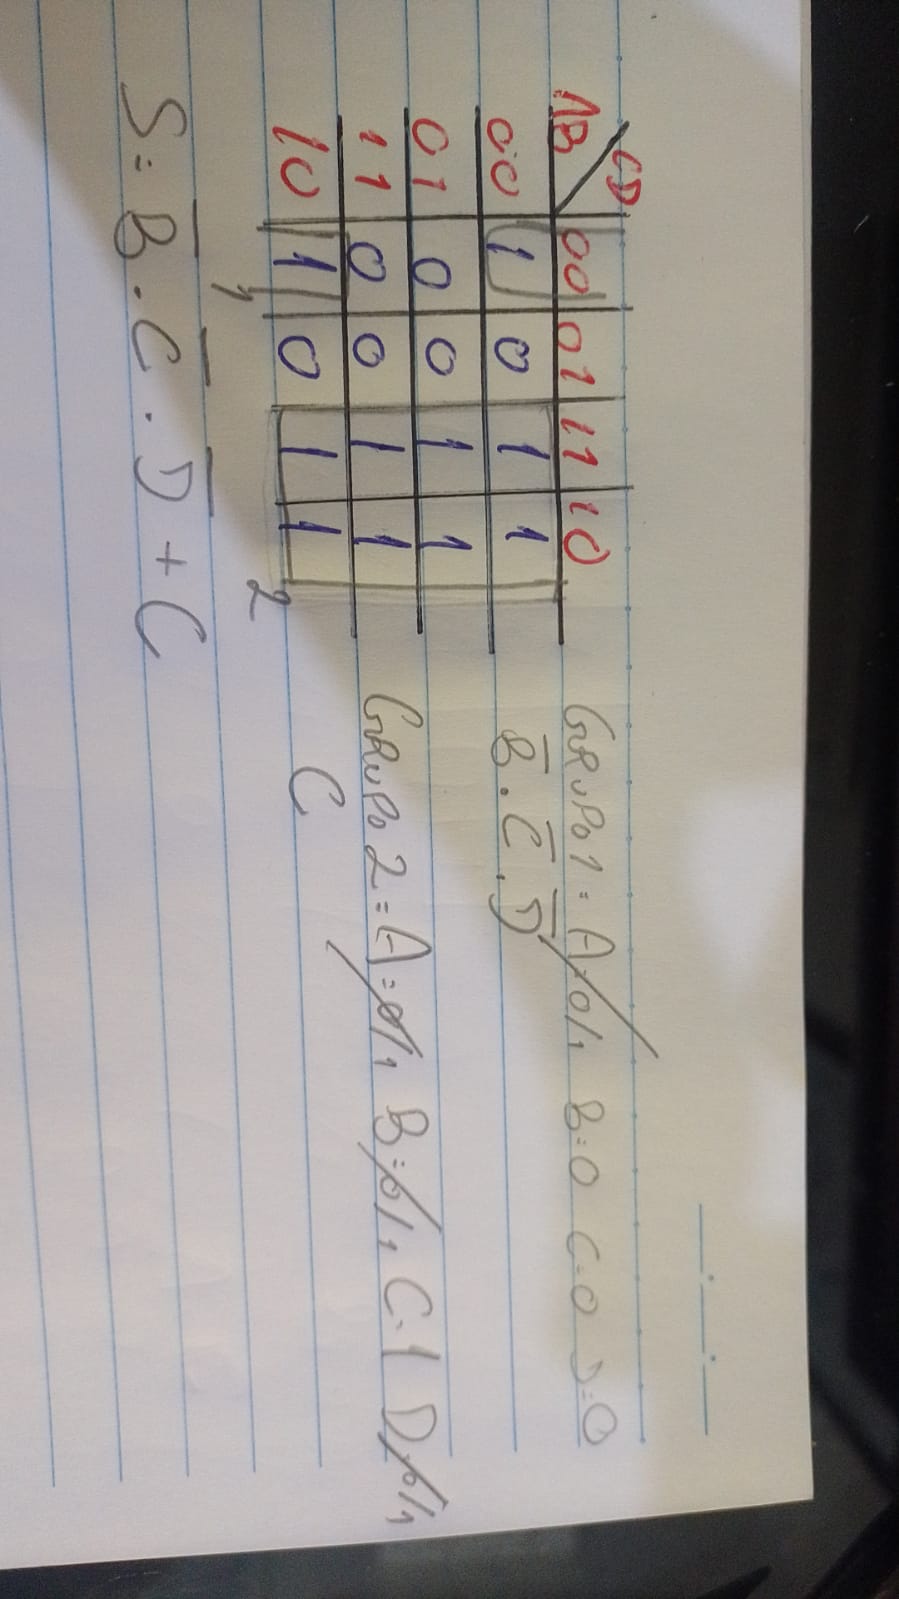 CD
AB 00 01 11 10
00 1 0 1 1
01 0 0 1 1
11 0 0 1 1
10 1 0 1 1
1 2
GRUPO 1 = A=0/1 B=0 C=0 D=0
B̅ . C̅ . D̅
GRUPO 2 = A=0/1 B=0/1 C=1 D=0/1
C
S = B̅ . C̅ . D̅ + C